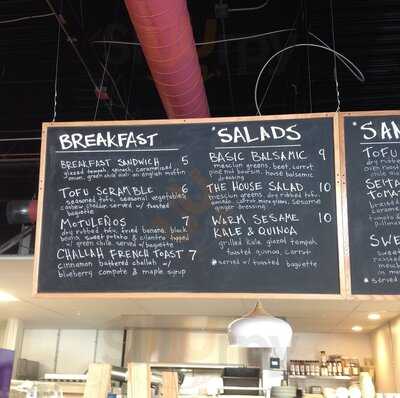 BREAKFAST
BREAKFAST SANDWICH 5
glazed tempeh, spinach, caramelized
onion, green chile aioli on an english muffin
TOFU SCRAMBLE 6
seasoned tofu, seasonal vegetables
cashew cheddar. served w/ toasted
baguette
MOTULEÑOS 7
dry rubbed tofu, fried banana, black
beans, sweet potato & cilantro topped
w/ green chile. served w/ baguette
CHALLAH FRENCH TOAST 7
cinnamon battered challah w/
blueberry compote & maple syrup
*SALADS
BASIC BALSAMIC 9
mesclun greens, beet, carrot
pine nut house balsamic
THE HOUSE SALAD 10
mesclun greens, dry rubbed tofu,
carrot, sesame
ginger dressing
WARM SESAME 10
KALE & QUINOA
grilled kale, glazed tempeh
toasted quinoa, carrot
*served w/ toasted baguette
*SAN
TOFU
dry rubbed
SEITA
TOMAT
SWE
roasted
*served